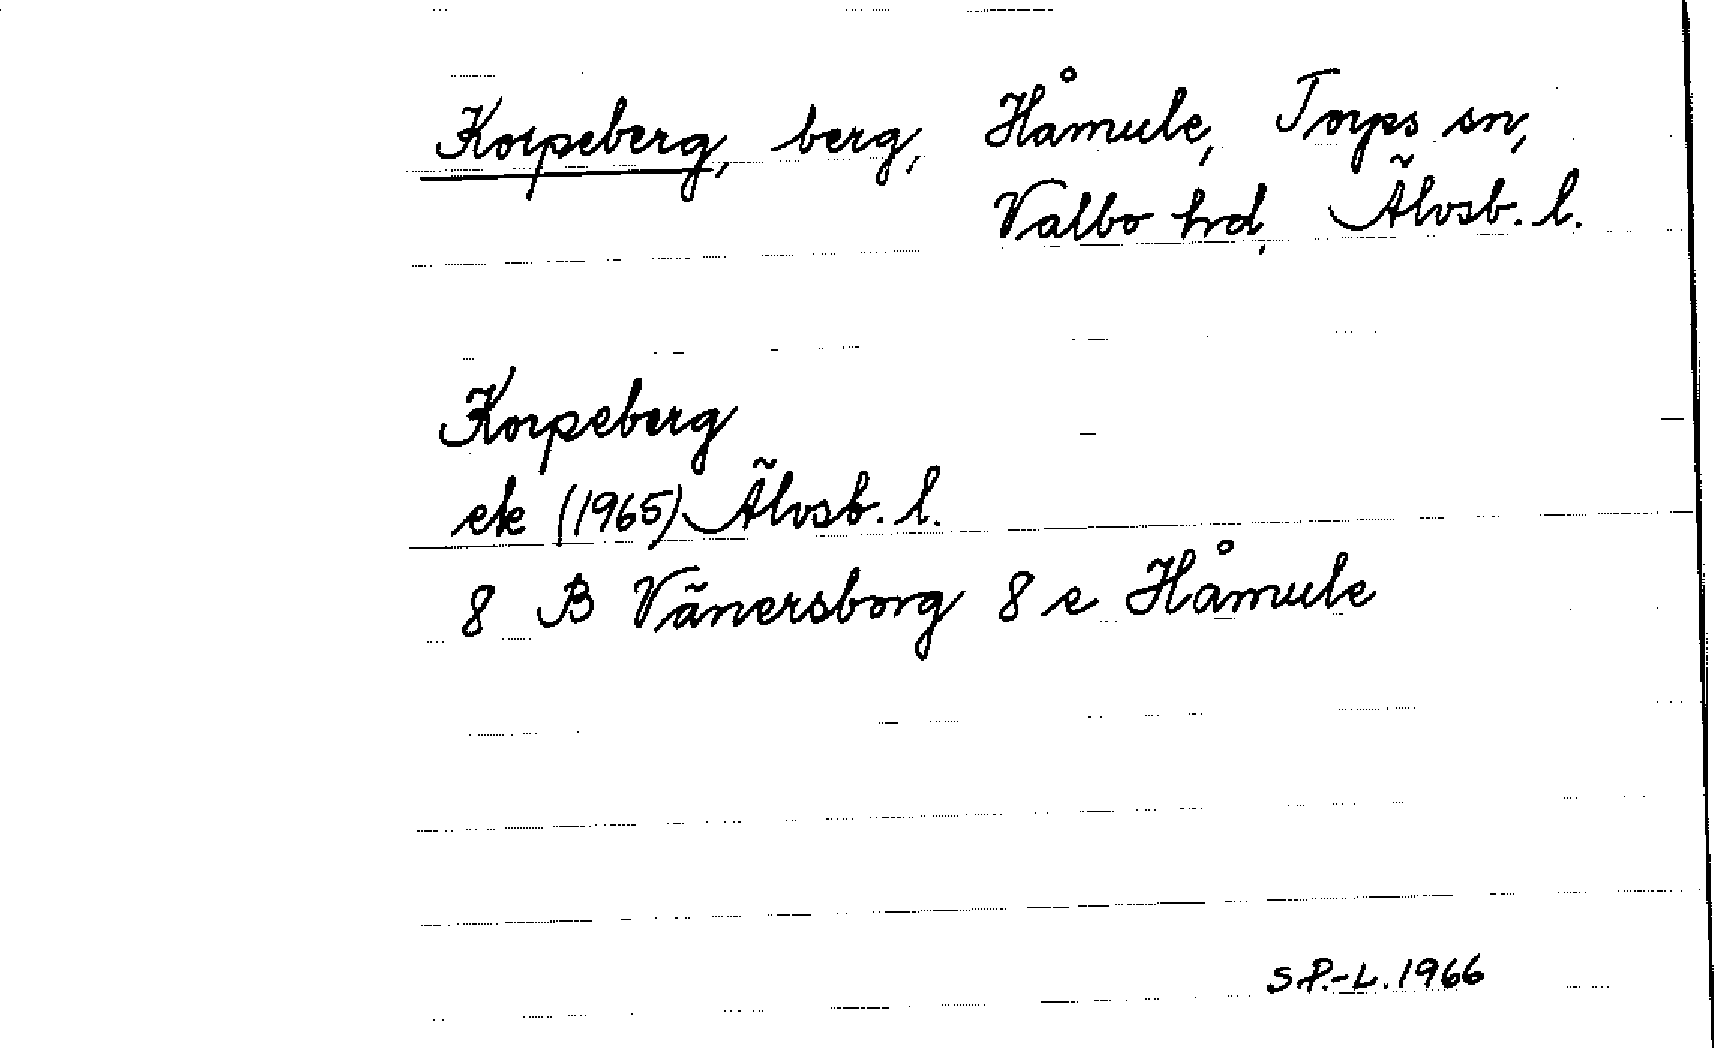 Korpeberg, berg, Håmule, Torps sn,
Valbo hd, Älvsb. l.
Korpeberg
ek (1965) Älvsb. l.
8 B Vänersborg 8 e Håmule
S P.-L. 1966